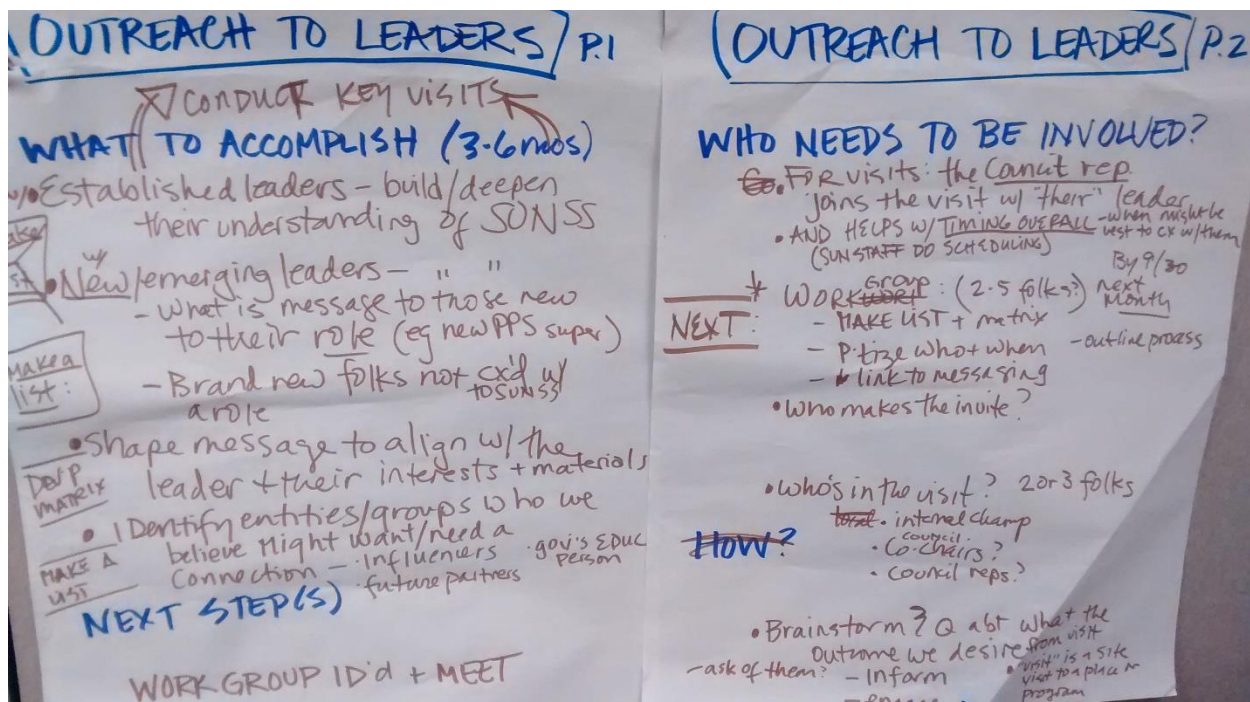 OUTREACH TO LEADERS P.1
CONDUCT KEY VISITS
WHAT TO ACCOMPLISH (3-6 mos)
w/ • Established leaders - build/deepen
their understanding of SUNSS
w/
• New/emerging leaders - " "
- What is message to those new
to their role (eg new PPS super)
Make a
list:
- Brand new folks not cx'd w/
to SUNSS
a role
• Shape message to align w/ the
leader + their interests + materials
DEV'P
MATRIX
• IDentify entities/groups who we
believe might want/need a
connection - • influencers • gov's EDUC
person
• future partners
MAKE A
LIST
NEXT STEP(S)
WORKGROUP ID'd + MEET
OUTREACH TO LEADERS P.2
WHO NEEDS TO BE INVOLVED?
• FOR visits: the Council rep
joins the visit w/ "their" leader
• AND HELPS W/ TIMING OVERALL - when might be
best to cx w/ them
(SUN STAFF DO SCHEDULING)
By 9/30
next
month
NEXT:
* WORK GROUP: (2-5 folks?)
- MAKE LIST + matrix
- P'tize who + when - outline process
- link to messaging
• Who makes the invite?
• Who's in the visit? 2 or 3 folks
• internal champ
council
• Co-chairs?
• council reps?
How?
• Brainstorm? Q abt what the
outcome we desire from visit
- ask of them? - Inform
• "visit" is a site
visit to a place or
program